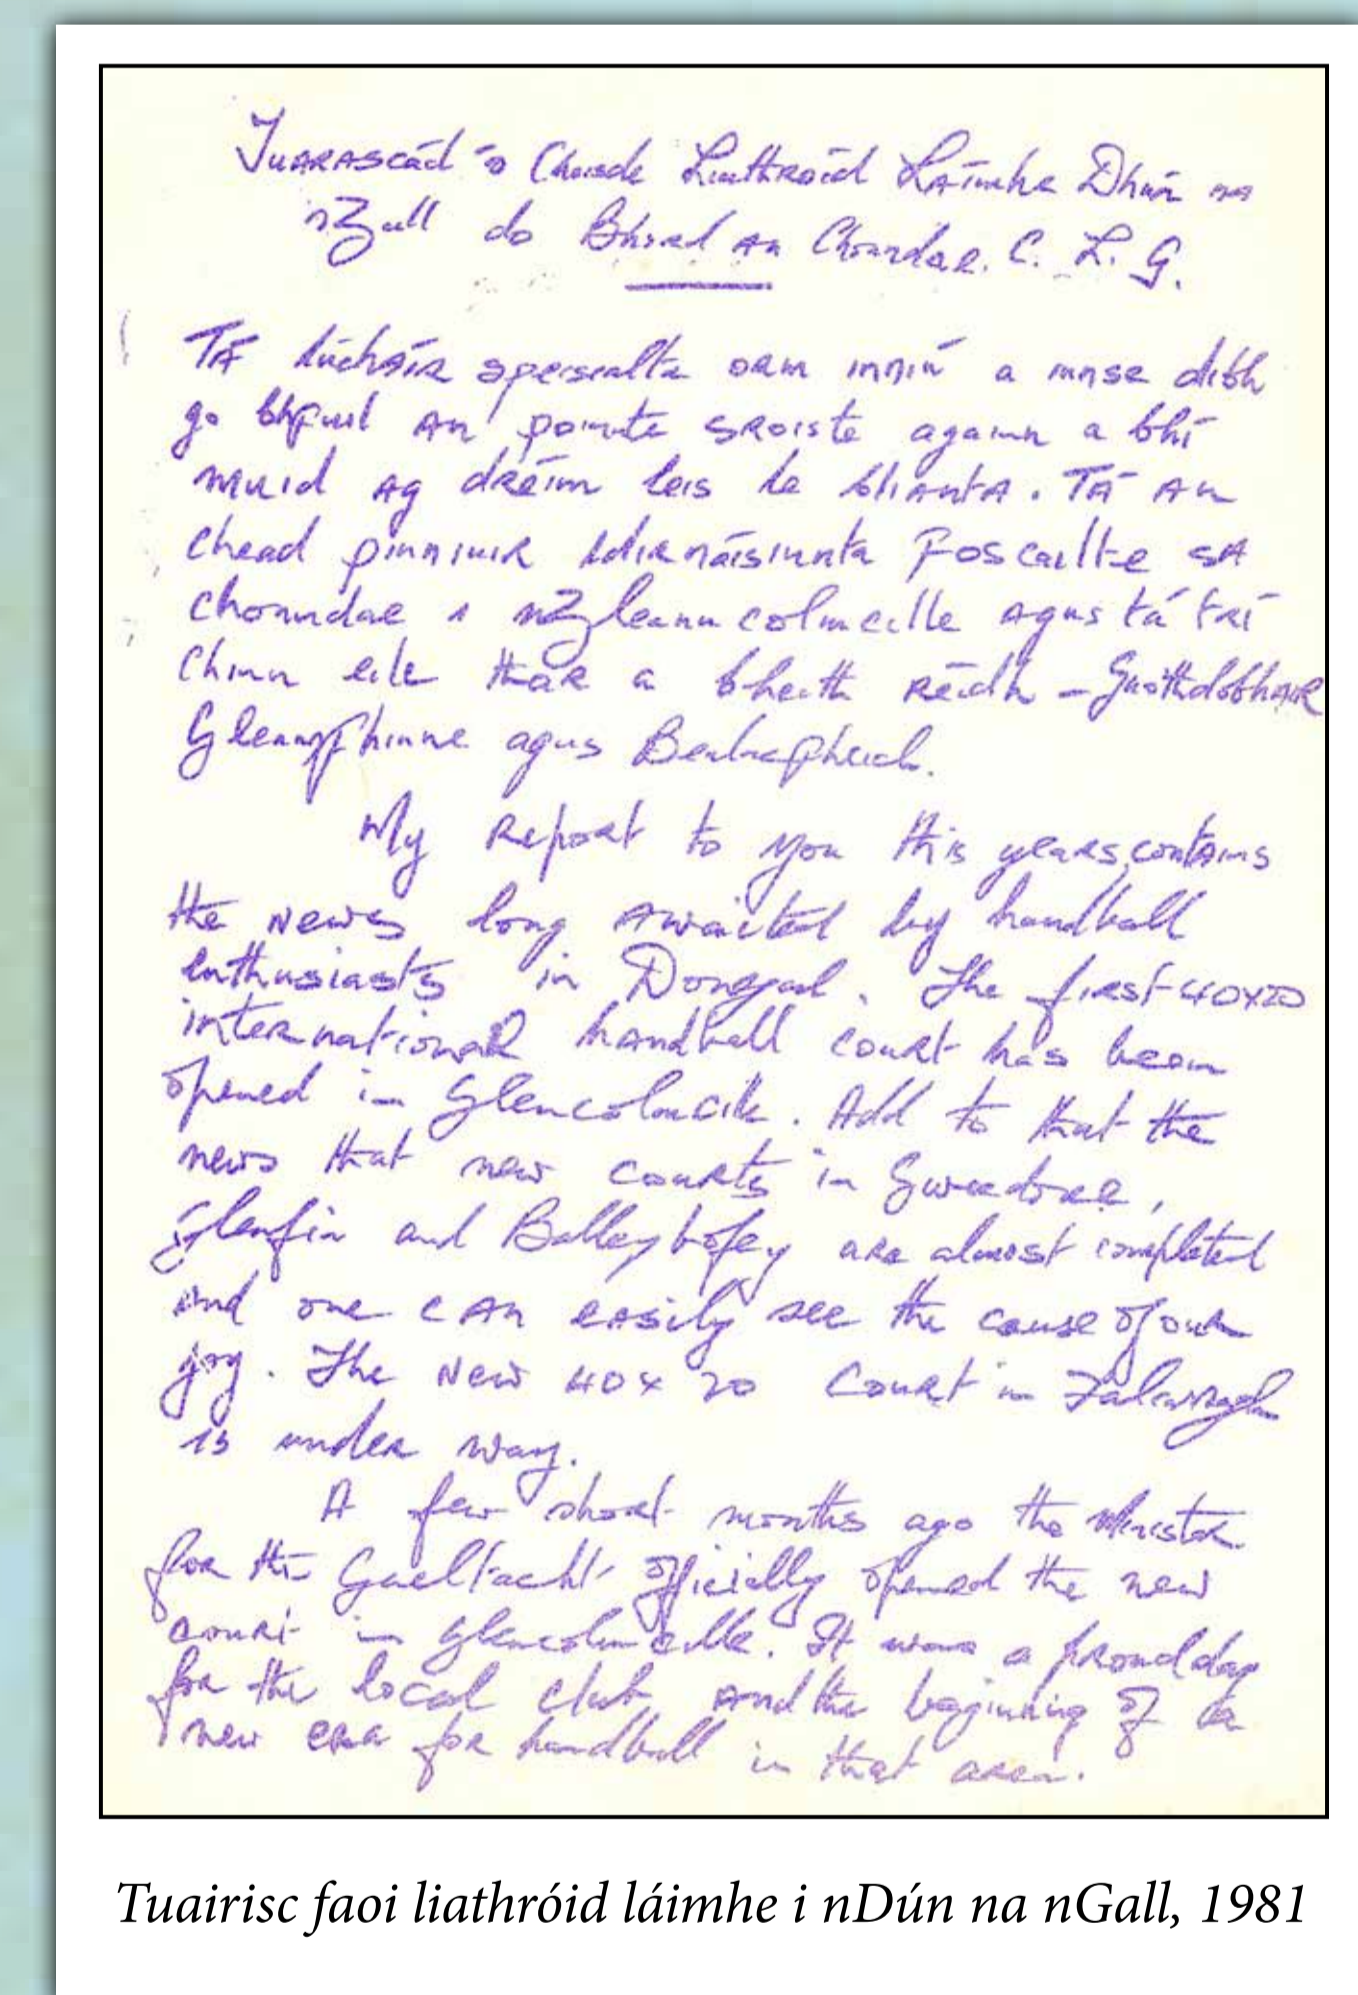 Tuarascáil ó Choisde Liathróid Láimhe Dhún na
nGall do Bhord an Chondae. C. L. G.
Tá lúcháir speisialta orm inniú a innse díbh
go bhfuil an pointe sroiste againn a bhí
muid ag dréim leis le blianta. Tá an
chead pinniuir idirnáisiunta foscailte sa
chonndae i nGleanncolmcille agus tá trí
chinn eile thar a bheith réidh - Gaothdobhair
Gleannfhinne agus Bealaqfheich.
My report to you this years, contains
the news long awaited by handball
enthusiasts in Donegal. The first 40x20
international handball court has been
opened in Glencolmcille. Add to that the
news that new courts in Gweedore,
Glenfin and Ballybofey are almost completed
and one can easily see the cause of our
joy. The new 40 x 20 court in
is under way.
A few short months ago the Minister
for the Gaeltacht officially opened the new
court in Glencolmcille. It was a proud day
for the local club and the beginning of a
new era for handball in that area.
Tuairisc faoi liathróid láimhe i nDún na nGall, 1981